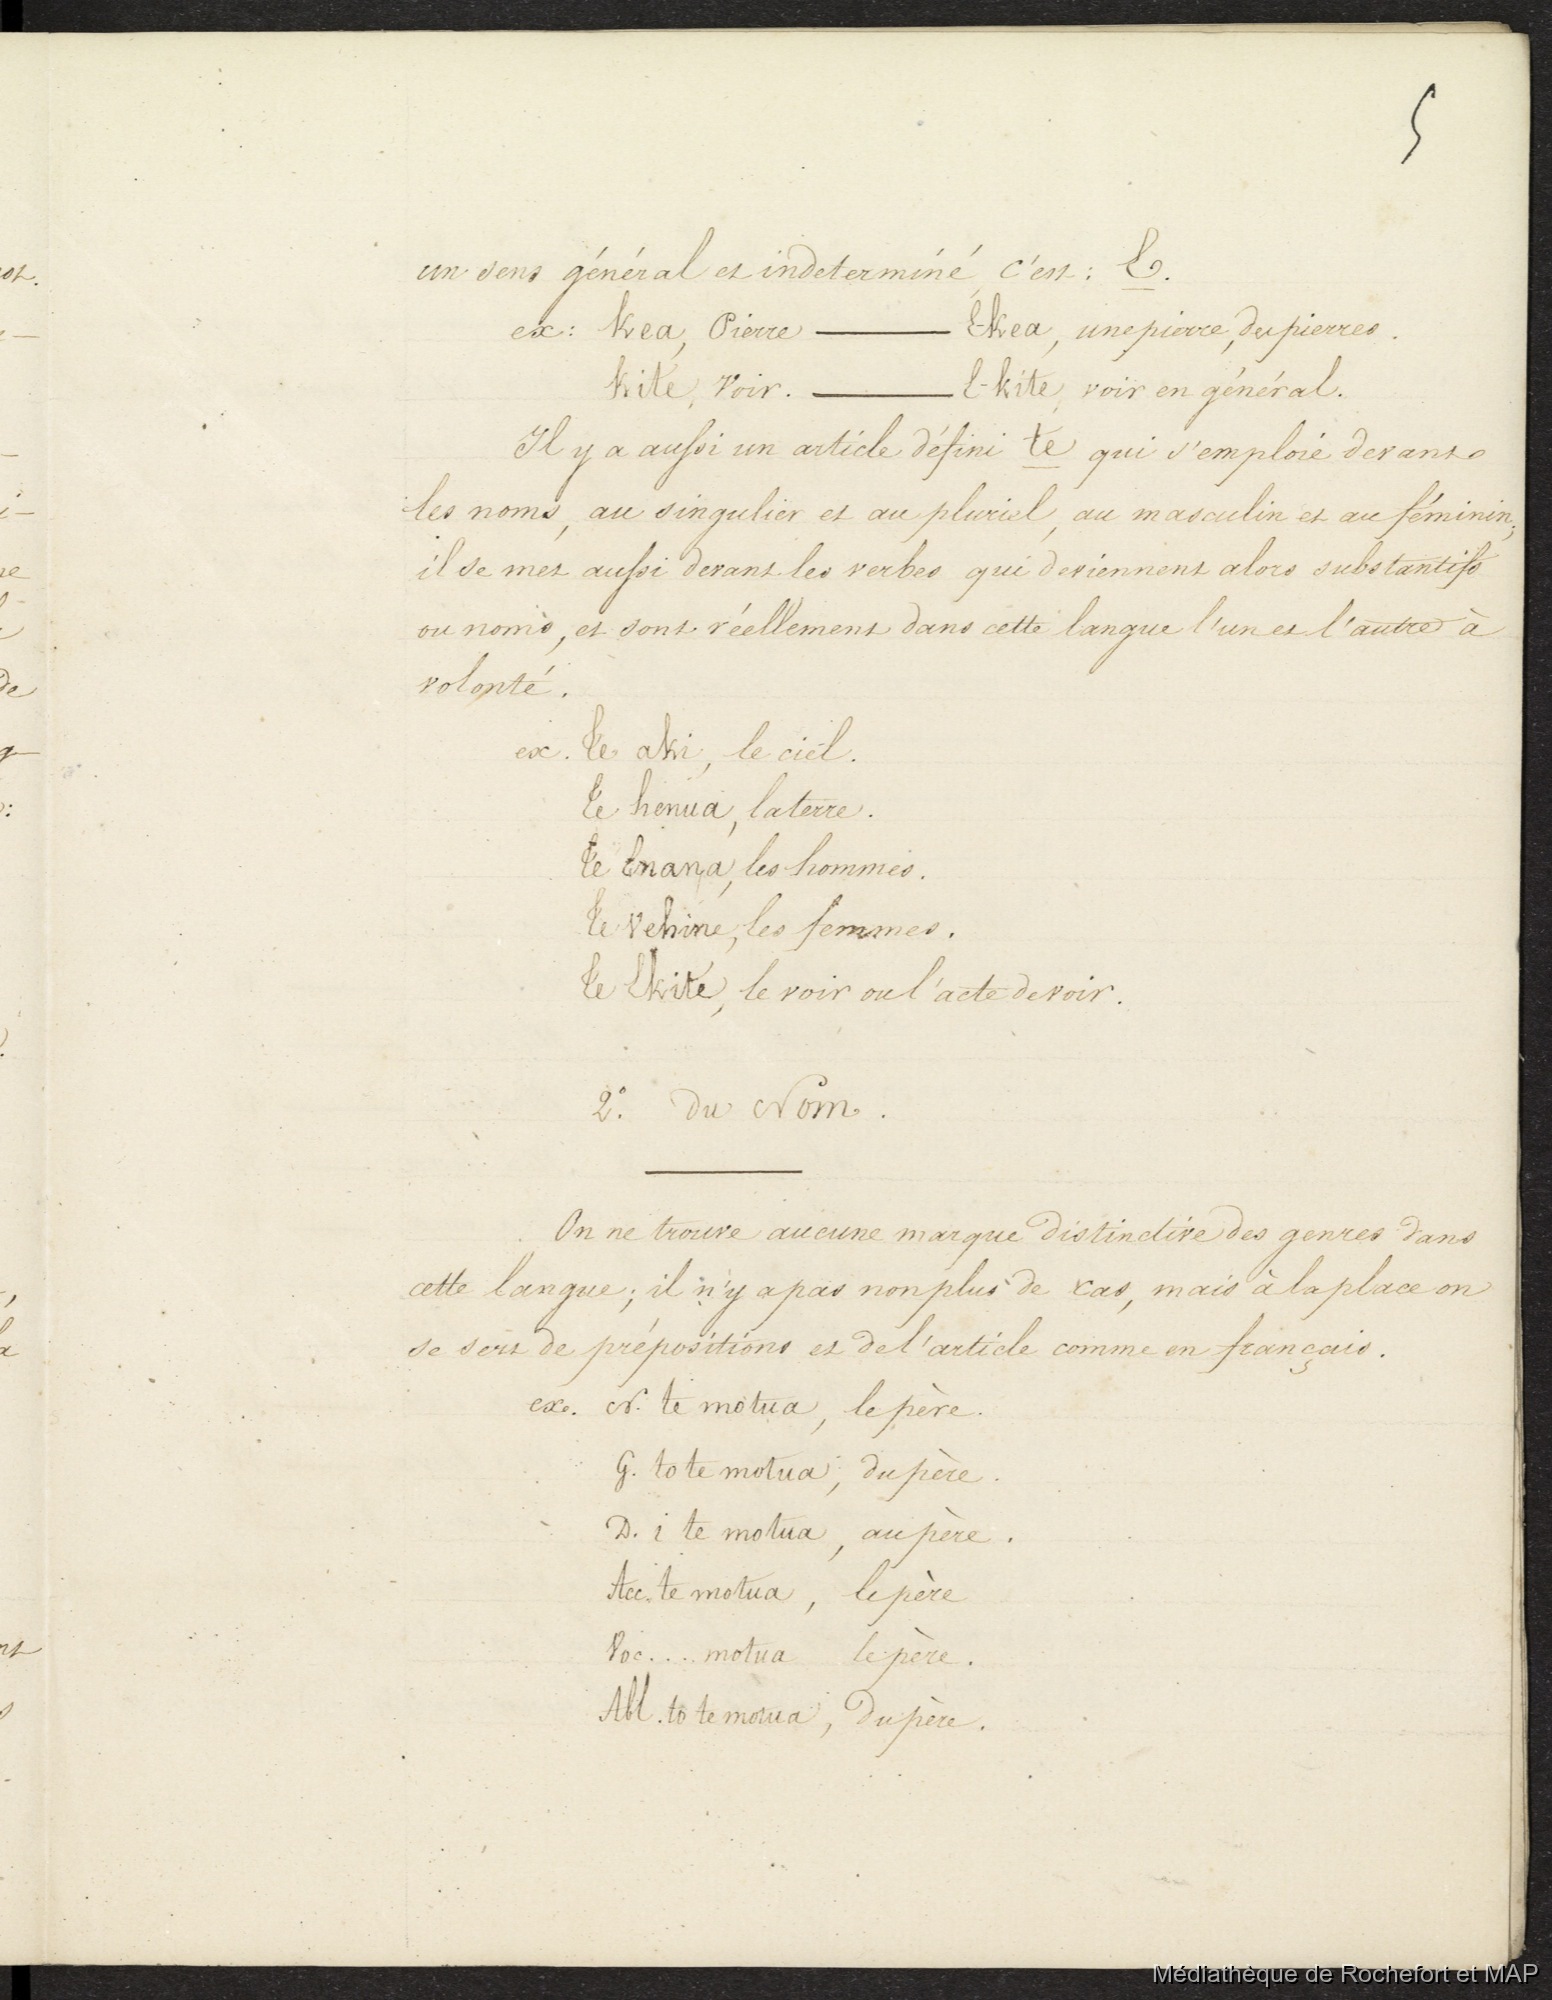 5
un sens général et indeterminé, c'est : E.
ex : kea, Pierre ——— E-kea, une pierre, des pierres.
kite, Voir. ——— E-kite, voir en général.
Il y a aussi un article défini te qui s'emploie devant
les noms, au singulier et au pluriel, au masculin et au féminin;
il se met aussi devant les verbes qui deviennent alors substantifs
ou noms, et sont réellement dans cette langue l'un et l'autre à
volonté.
ex. Te aki, le ciel.
Te henua, la terre.
Te Enana, les hommes.
Te vehine, les femmes.
Te Ekite, le voir ou l'acte de voir.
2°. Du Nom.
On ne trouve aucune marque distinctive des genres dans
cette langue; il n'y a pas non plus de cas, mais à la place on
se sert de prépositions et de l'article comme en français.
exe. N. te motua, le père.
G. to te motua, du père.
D. i te motua, au père.
Acc. te motua, le père
Voc.... motua le père.
Abl. to te motua, du père.
Médiathèque de Rochefort et MAP